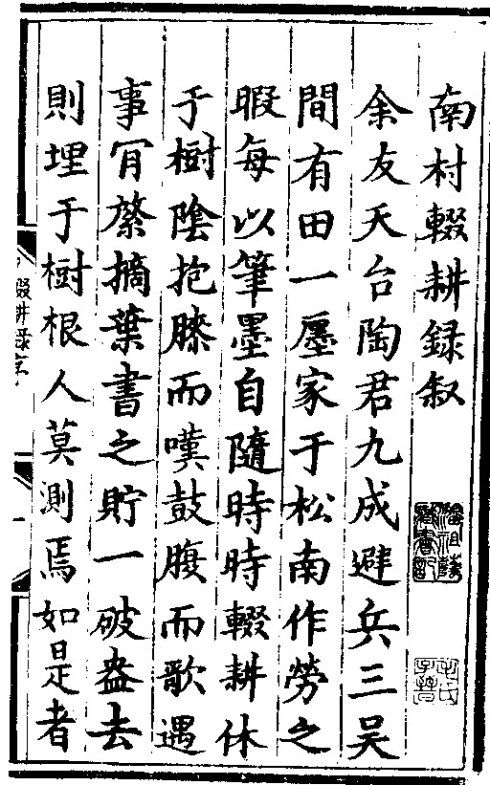 南村輟耕録叙
余友天台陶君九成避兵三吴
間有田一廛家于松南作勞之
暇每以筆墨自隨時時輟耕休
于樹陰抱膝而嘆鼓腹而歌遇
事肎綮摘葉書之貯一破盎去
則埋于樹根人莫測焉如是者